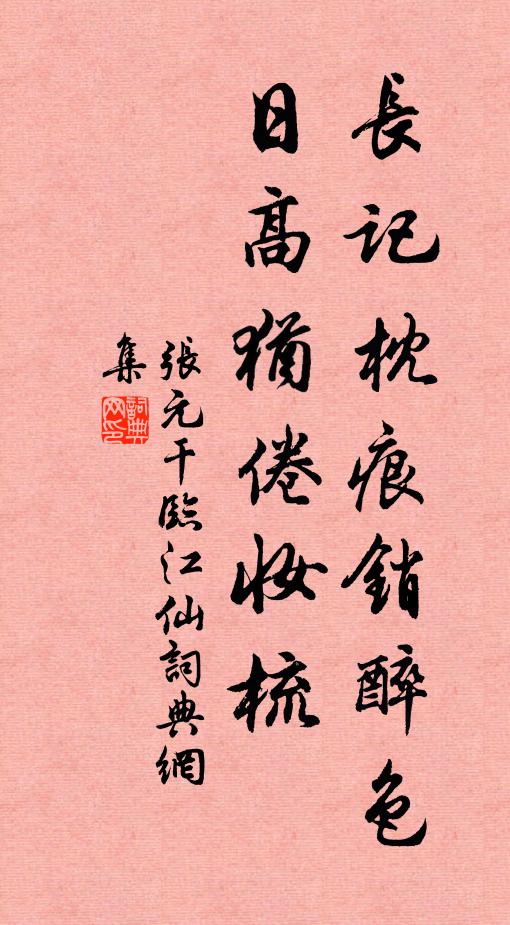 長記枕痕銷醉色
日高猶倦妝梳
張元干臨江仙詞典網
集
詞典
网印